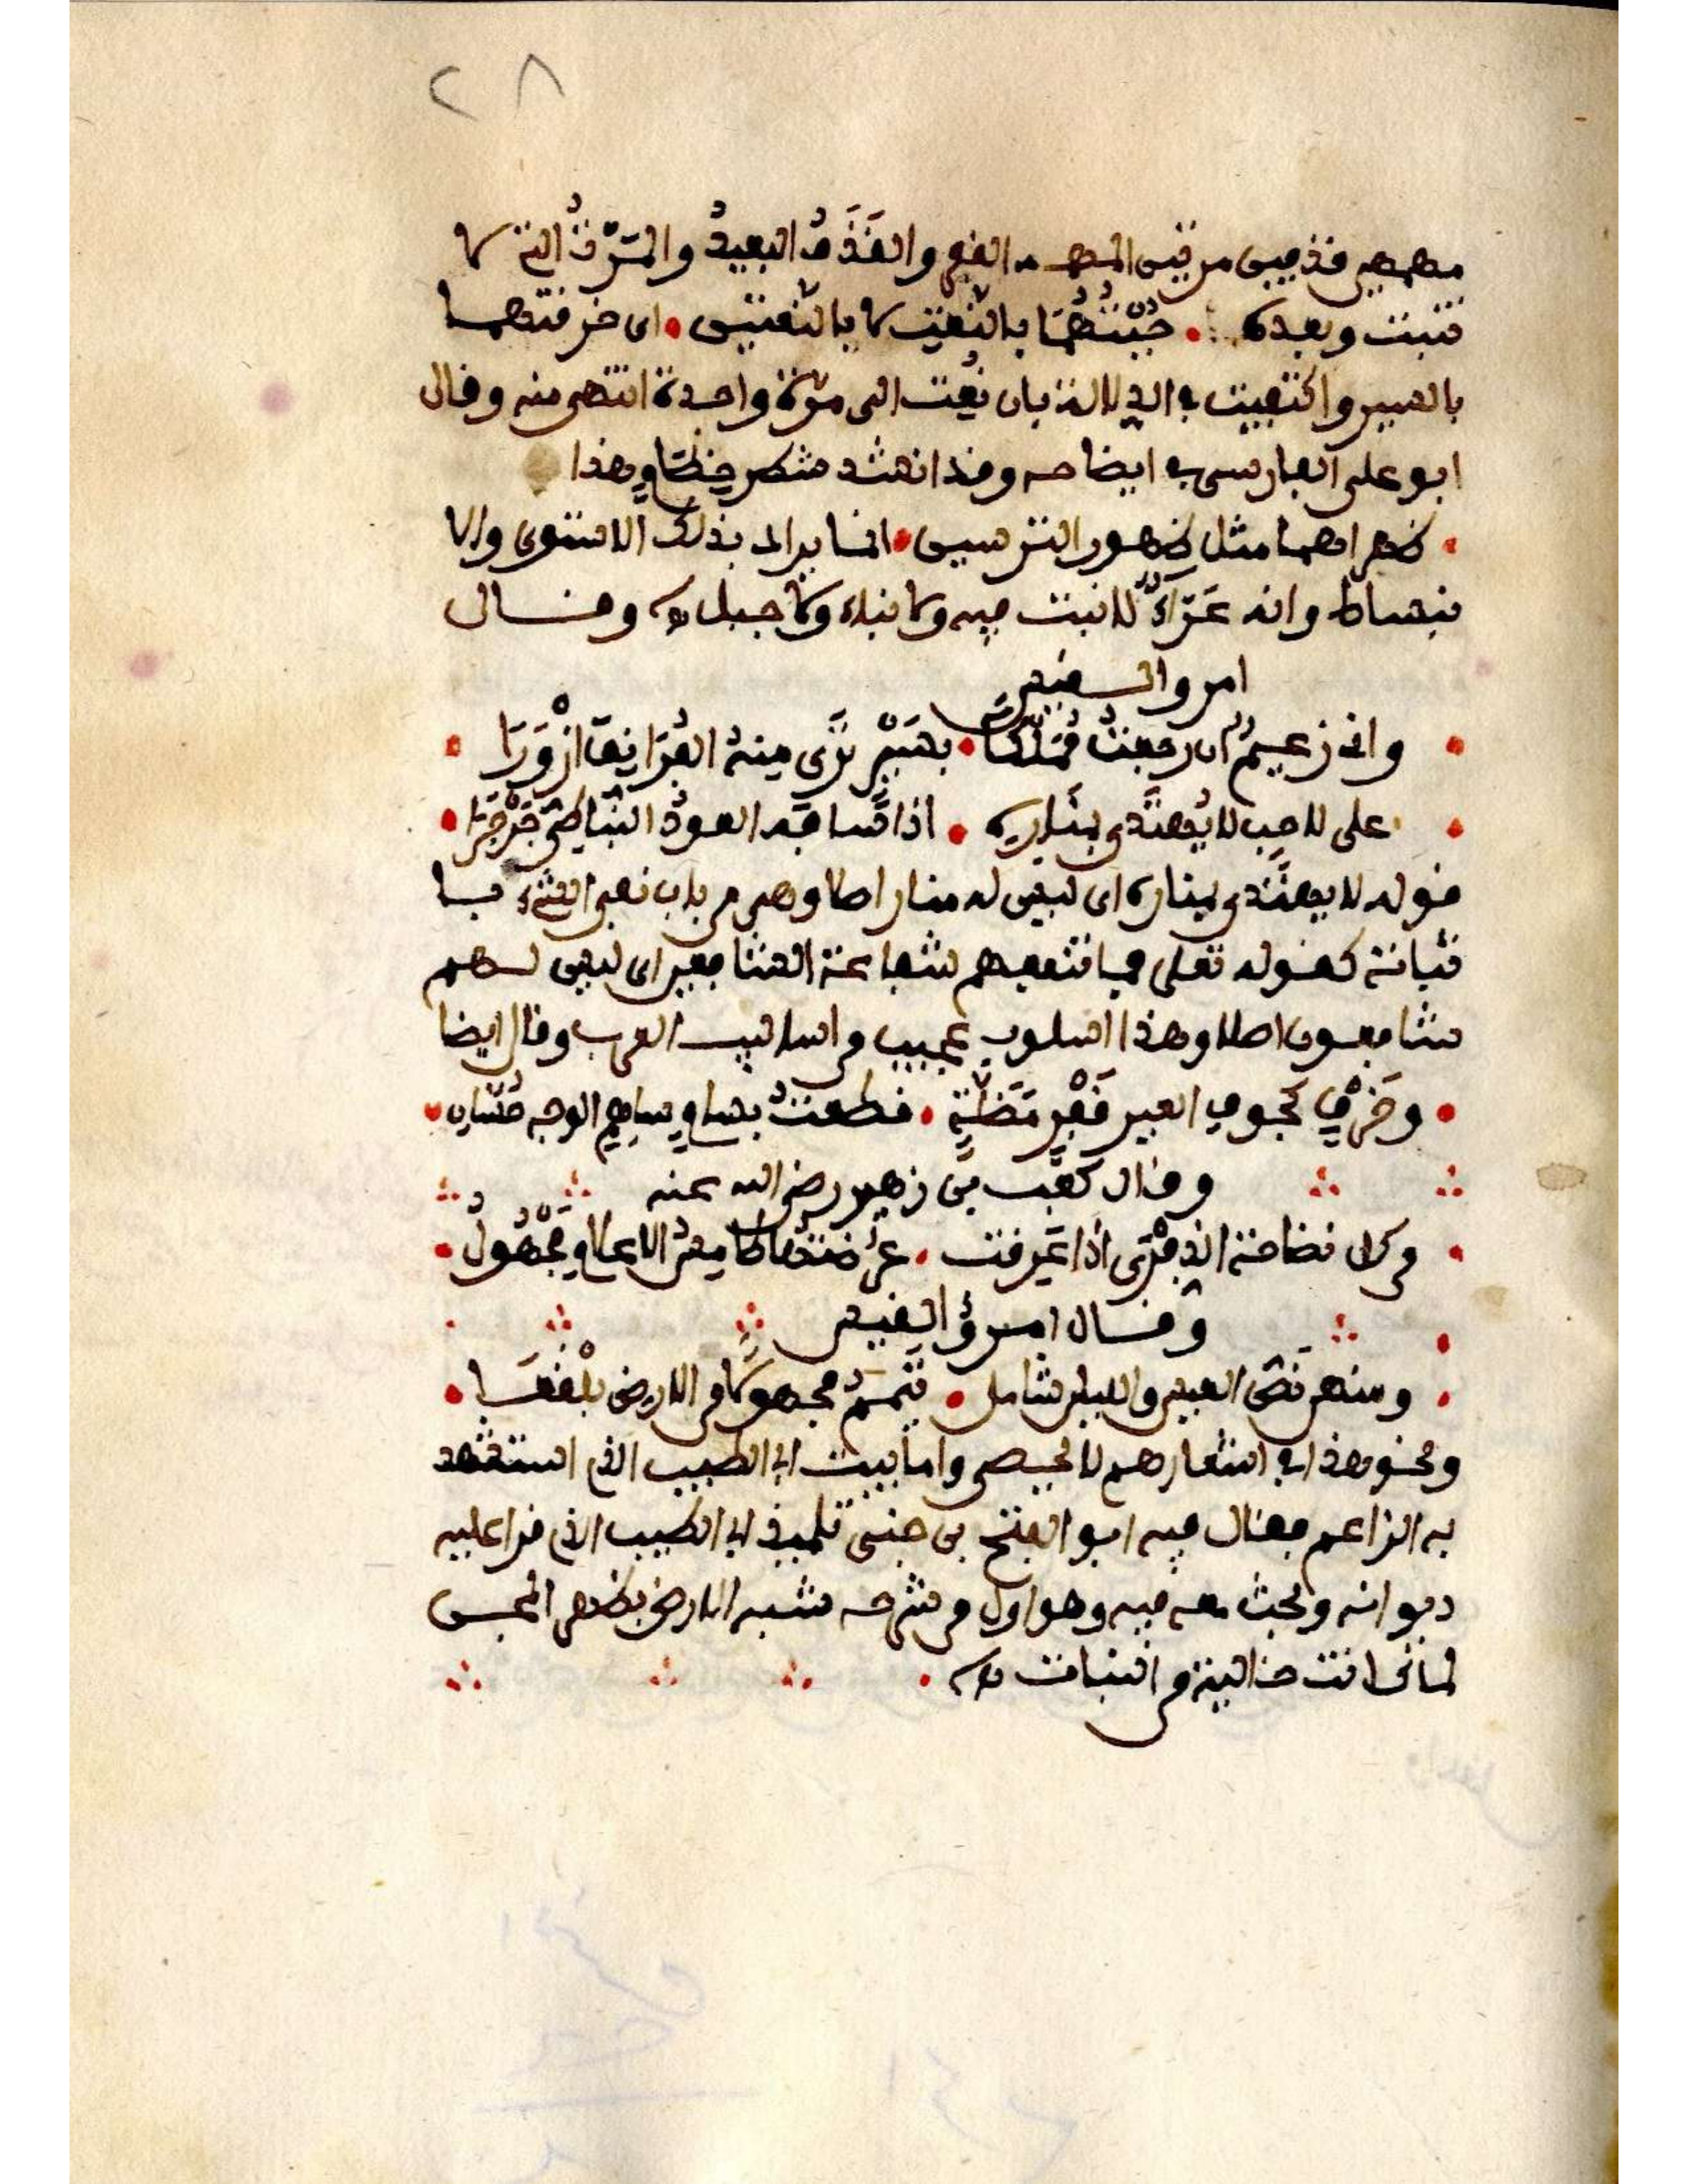 ٢٨
مهمهين قذفين مرتين المهمه القفر والقَذَفُ البعيدُ والمَرْتُ التي لا
تنبت وبعده جُبْتُهُمَا بالنَّعْتِ لا بالنَّعْتَيْنِ اى خرقتهما
بالسير واكتفيت في الدلالة بان نُعِتَ الى مرّة واحدة انتهى منه وقال
ابو على الفارسى في ايضاحه وقد انشد شطر خطام هذا
ظهراهما مثل ظهور الترسين انما يراد بذلك الاستوى والا
نبساط وانه عَرَاءٌ لا نبت فيه ولا بناء ولا جبل اه وقال
امرو القيس
وانى زعيمٌ ان رجعتُ مُمَلَّكًا بسَيْرٍ تَرَى مِنهُ الفُرَانِقَ ازْوَرَا
على لاحِبٍ لا يُهتَدَى بِمَنَارِهِ اذا سَافَهُ العودُ النُّبَاطِيُّ جَرْجَرَا
قوله لا يهتدى بمناره اى ليس له منار اصلا وهى من باب نفى الشئ بـا
ثباته كقوله تعلى فما تنفعهم شفاعة الشافعين اى ليس لهم
شافعون اصلا وهذا اسلوب عجيب من اساليب العرب وقال ايضا
وخَرْقٍ كجوف العير قَفْرٍ مَضَلَّةٍ قطعتُ بسام ساهم الوجه حُسَّانِ
وقال كعب بن زهير رضى الله عنه
من كل نضاخة الذفْرَى اذا عَرِقت عُرْضَتُها طامسُ الاعلام مَجْهُولُ
وقال امرؤ القيس
ونحو هذا في اشعارهم لا يحصى واما بيت ابى الطيب الذى استشهد
به الزاعم فقال فيه ابو الفتح بن جنى تلميذ ابى الطيب الذى قرا عليه
ديوانه وبحث معه فيه وهو اول من شرحه شبه الارض بظهر المجن
لما كانت خالية من النبات اه